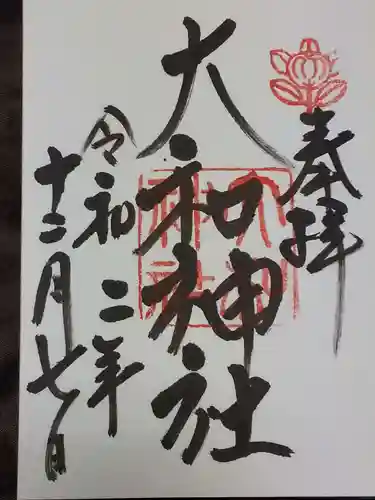 奉拝
大和神社
令和二年
十二月七日